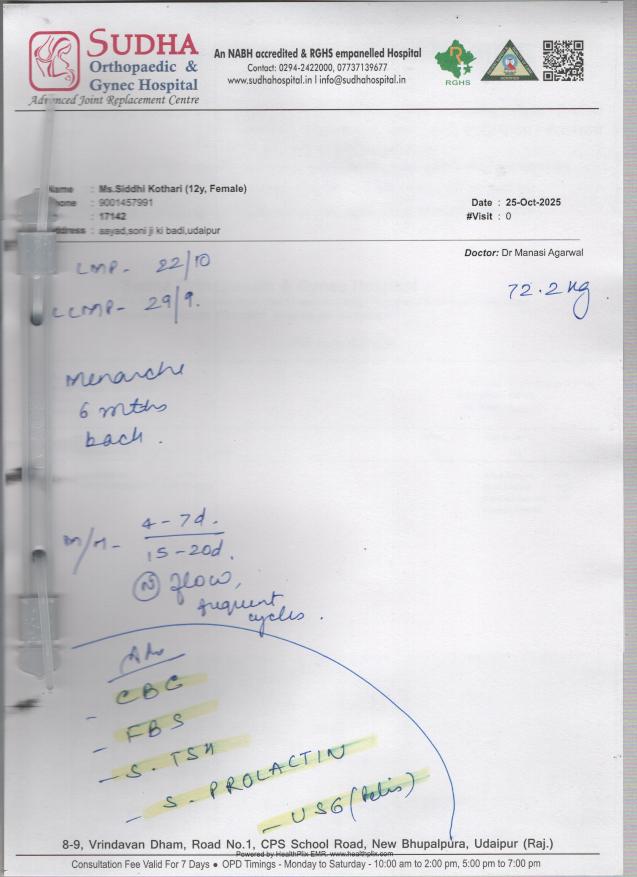 SUDHA
Orthopaedic &
Gynec Hospital
Advanced Joint Replacement Centre
An NABH accredited & RGHS empanelled Hospital
Contact: 0294-2422000, 07737139677
www.sudhahospital.in I info@sudhahospital.in
RGHS
Name : Ms.Siddhi Kothari (12y, Female)
hone : 9001457991
: 17142
ddress : aayad,soni ji ki badi,udaipur
Date : 25-Oct-2025
#Visit : 0
Doctor: Dr Manasi Agarwal
72.2 kg
LMP - 22/10
LLMP - 29/9.
Menarche
6 mths
back.
M/H - 4-7d.
15-20d.
(N) flow,
frequent
cycles.
Adv
- CBC
- FBS
- S. TSH
- S. PROLACTIN
- USG (Pelvis)
8-9, Vrindavan Dham, Road No.1, CPS School Road, New Bhupalpura, Udaipur (Raj.)
Powered by HealthPlix EMR. www.healthplix.com
Consultation Fee Valid For 7 Days ● OPD Timings - Monday to Saturday - 10:00 am to 2:00 pm, 5:00 pm to 7:00 pm